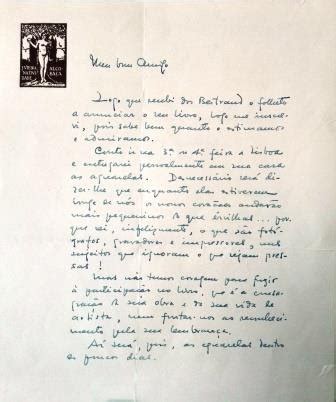 VIEIRA
NATIVI
DADE
ALCO
BAÇA
Meu bom Amigo
Logo que recebi do Bertrand o folheto
a anunciar o seu livro, logo me inscre-
vi, pois sabe bem quanto o estimamos
e admiramos.
Conto ir na 3ª ou 4ª feira a Lisboa
e entregarei pessoalmente em sua casa
as aguarelas. Desnecessário será
dizer-lhe que enquanto elas estiverem
longe de nós os nossos corações andarão
mais pequeninos do que ervilhas... por-
que sei, infelizmente, o que são fotó-
grafos, gravadores e impressores, uns
sujeitos que ignoram o que sejam pres-
sas!
Mas não temos coragem para fugir
à participação no livro, que é a consa-
gração da sua obra e da sua vida de
artista, nem furtar-nos ao reconheci-
mento pela sua lembrança.
Aí será, pois, as aguarelas dentro
de poucos dias.